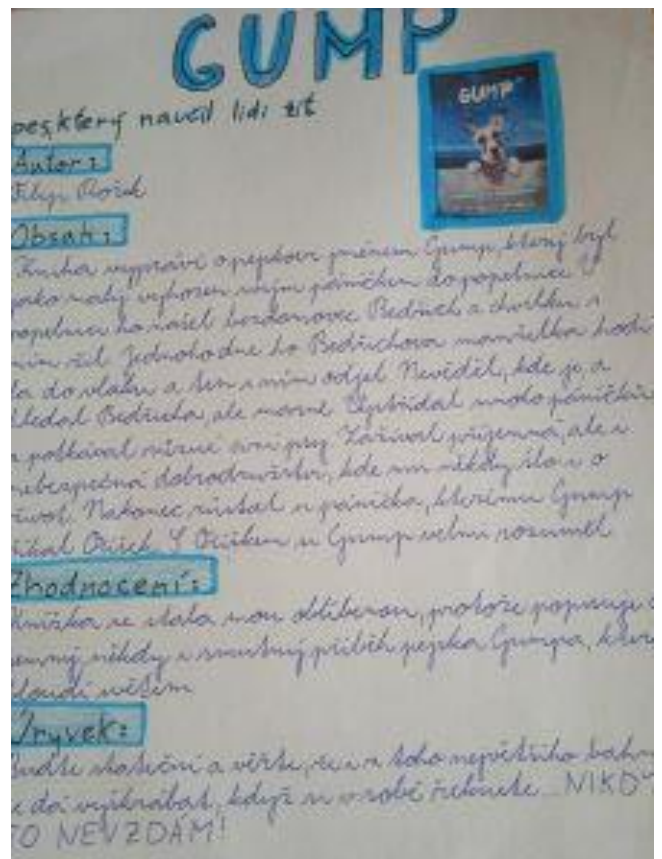 GUMP
pes, který naučil lidi žít
GUMP
Autor:
Filip Rožek
Obsah:
Kniha vypráví o pejskovi jménem Gump, který byl
jako malý vyhozen svým páničkem do popelnice. V
popelnici ho našel bezdomovec Bedřich a chvilku s
ním žil. Jednoho dne ho Bedřichova manželka hodi
la do vlaku a ten s ním odjel. Nevěděl, kde je, a
hledal Bedřicha, ale marně. Vystřídal mnoho páníčků
a potkával různé psy. Zažíval příjemná, ale i
nebezpečná dobrodružství, kde mu někdy šlo i o
život. Nakonec zůstal u páníčka, kterému Gump
říkal Oříšek. S Oříškem si Gump velmi rozuměl.
Zhodnocení:
Knížka se stala mou oblíbenou, protože popisuje
někdy i smutný příběh pejska Gumpa,
světem
Úryvek:
Buďte stateční a věřte, že i z toho největšího bahn
se dá vyškrábat, když si v sobě řeknete... NIKDY
TO NEVZDÁM!